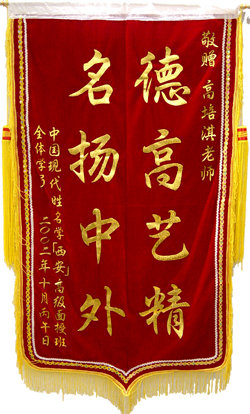 敬赠 高培淇老师
德高艺精
名扬中外
中国现代姓名学「西安」高级面授班
全体学子
二〇〇二年十月丙午日